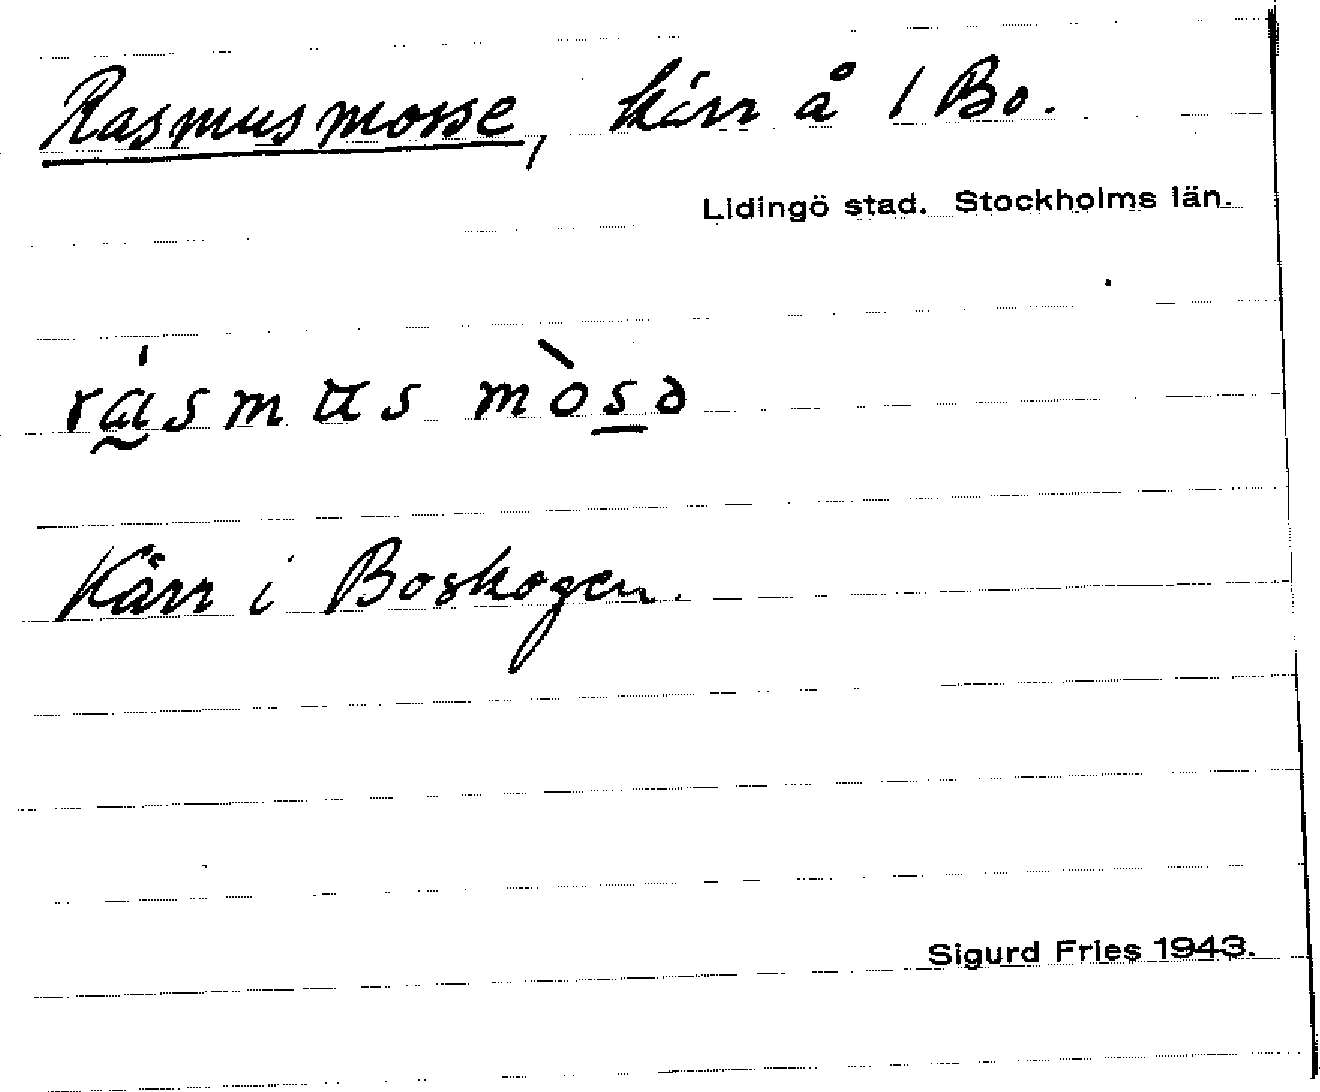 Rasmusmosse, kärr å 1 Bo.
Lidingö stad. Stockholms län.
rásmus mòsə
Kärr i Boskogen.
Sigurd Fries 1943.